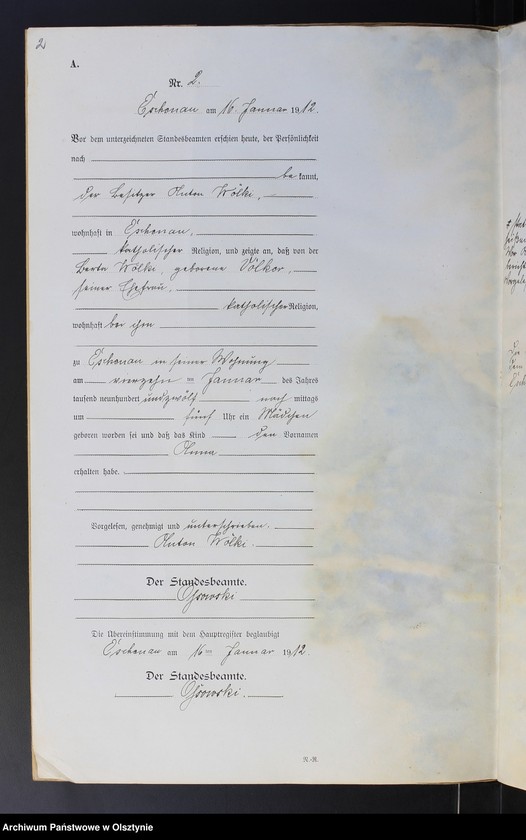 2
A.
Nr. 2.
Eschenau am 16. Januar 1912.
Vor dem unterzeichneten Standesbeamten erschien heute, der Persönlichkeit
nach
be kannt,
der Besitzer Anton Wölki,
wohnhaft in Eschenau,
katholischer Religion, und zeigte an, daß von der
Berta Wölki, geborene Völkor,
seiner Ehefrau,
katholischer Religion,
wohnhaft bei ihm
zu Eschenau in seiner Wohnung
am vierzehn ten Januar des Jahres
tausend neunhundert und zwölf nach mittags
um fünf Uhr ein Mädchen
geboren worden sei und daß das Kind den Vornamen
Anna
erhalten habe.
Vorgelesen, genehmigt und unterschrieben.
Anton Wölki.
Der Standesbeamte.
Die Übereinstimmung mit dem Hauptregister beglaubigt
Eschenau am 16ten Januar 1912.
Der Standesbeamte.
N.-R.
Archiwum Państwowe w Olsztynie